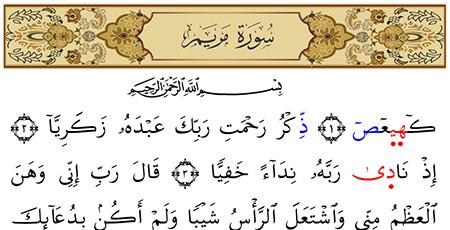 سُورَةُ مَرْيَم
بِسْمِ اللَّهِ الرَّحْمَٰنِ الرَّحِيمِ
كٓهيعٓصٓ ۝١ ذِّكْرُ رَحْمَتِ رَبِّكَ عَبْدَهُۥ زَكَرِيَّآ ۝٢
إِذْ نَادَىٰ رَبَّهُۥ نِدَآءً خَفِيًّا ۝٣ قَالَ رَبِّ إِنِّى وَهَنَ
ٱلْعَظْمُ مِنِّى وَٱشْتَعَلَ ٱلرَّأْسُ شَيْبًا وَلَمْ أَكُنۢ بِدُعَآئِكَ